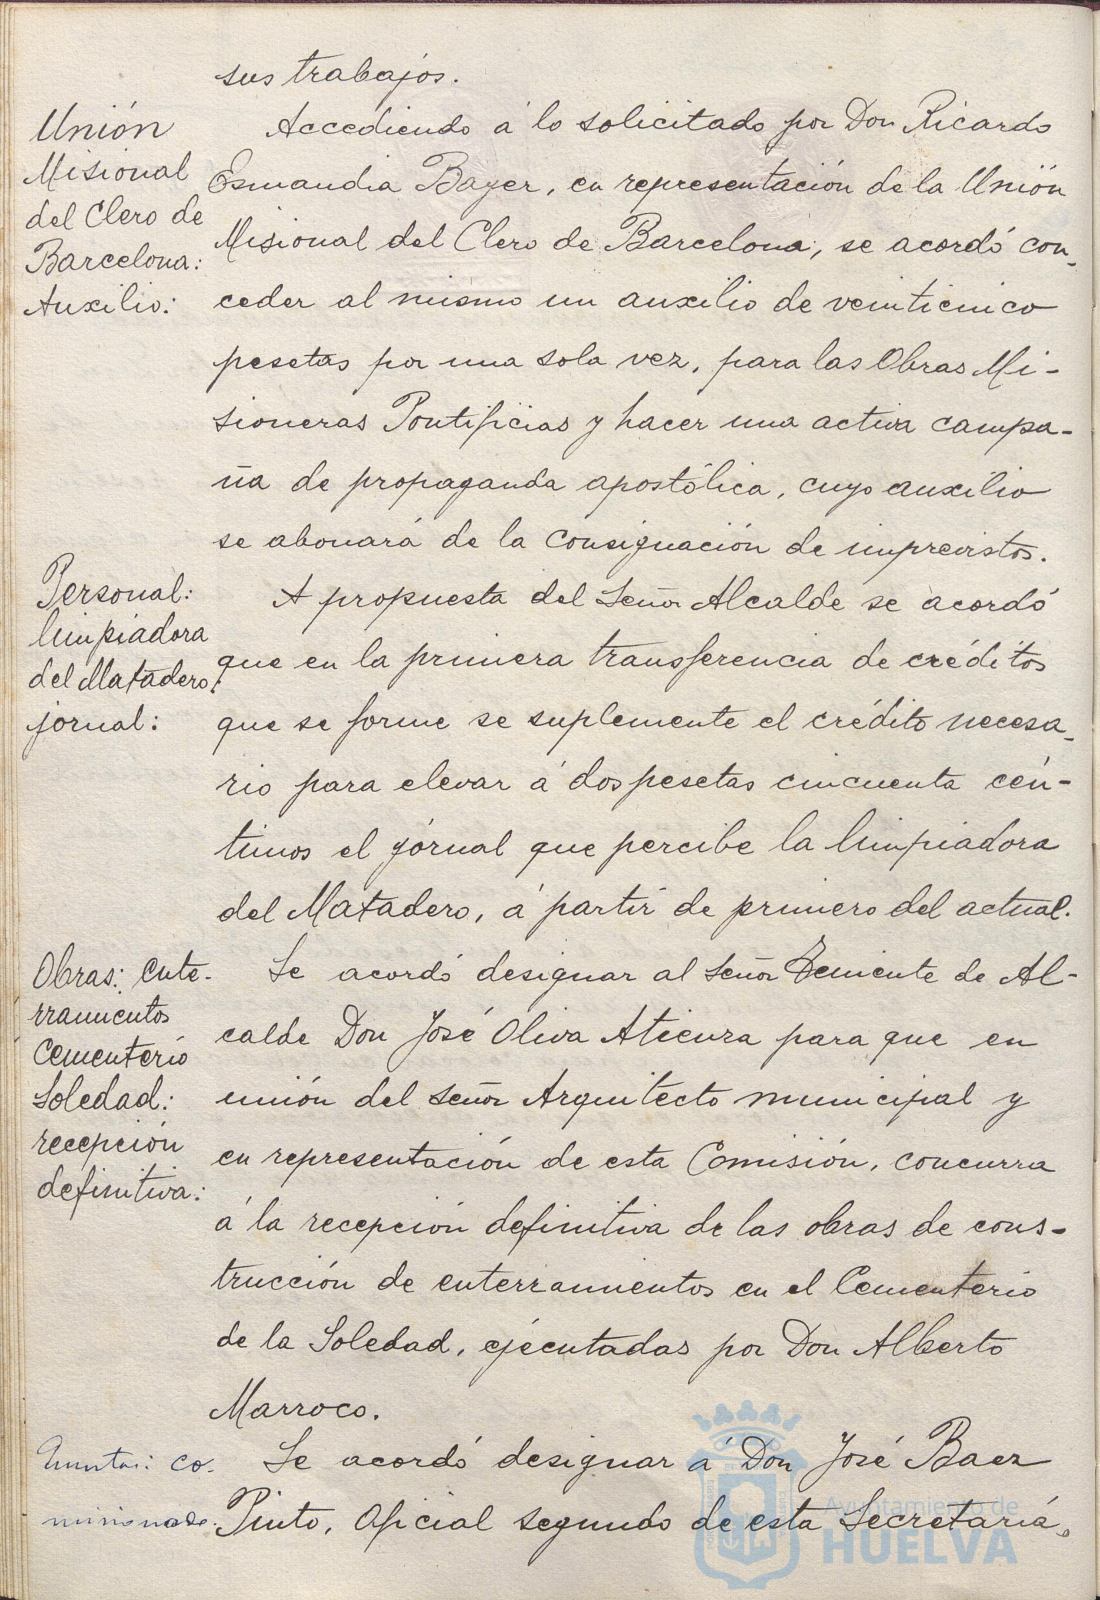 sus trabajos.
Unión
Misional
del Clero de
Barcelona:
Auxilio:
Accediendo á lo solicitado por Don Ricardo
Esmandia Bayer, en representación de la Unión
Misional del Clero de Barcelona, se acordó con-
ceder al mismo un auxilio de veinticinco
pesetas por una sola vez, para las Obras Mi-
sioneras Pontificias y hacer una activa campa-
ña de propaganda apostólica, cuyo auxilio
se abonará de la consignación de imprevistos.
Personal:
limpiadora
del Matadero:
jornal:
A propuesta del Señor Alcalde se acordó
que en la primera transferencia de créditos
que se forme se suplemente el crédito necesa-
rio para elevar á dos pesetas cincuenta cén-
timos el jornal que percibe la limpiadora
del Matadero, á partir de primero del actual.
Obras: ente-
rramientos
Cementerio
Soledad:
recepción
definitiva:
Se acordó designar al Señor Teniente de Al-
calde Don José Oliva Atienza para que en
unión del Señor Arquitecto municipal y
en representación de esta Comisión, concurra
á la recepción definitiva de las obras de cons-
trucción de enterramientos en el Cementerio
de la Soledad, ejecutadas por Don Alberto
Marroco.
co-
misionado.
Se acordó designar á Don José Baez
Pinto, Oficial segundo de esta Secretaría,
Ayuntamiento de
HUELVA